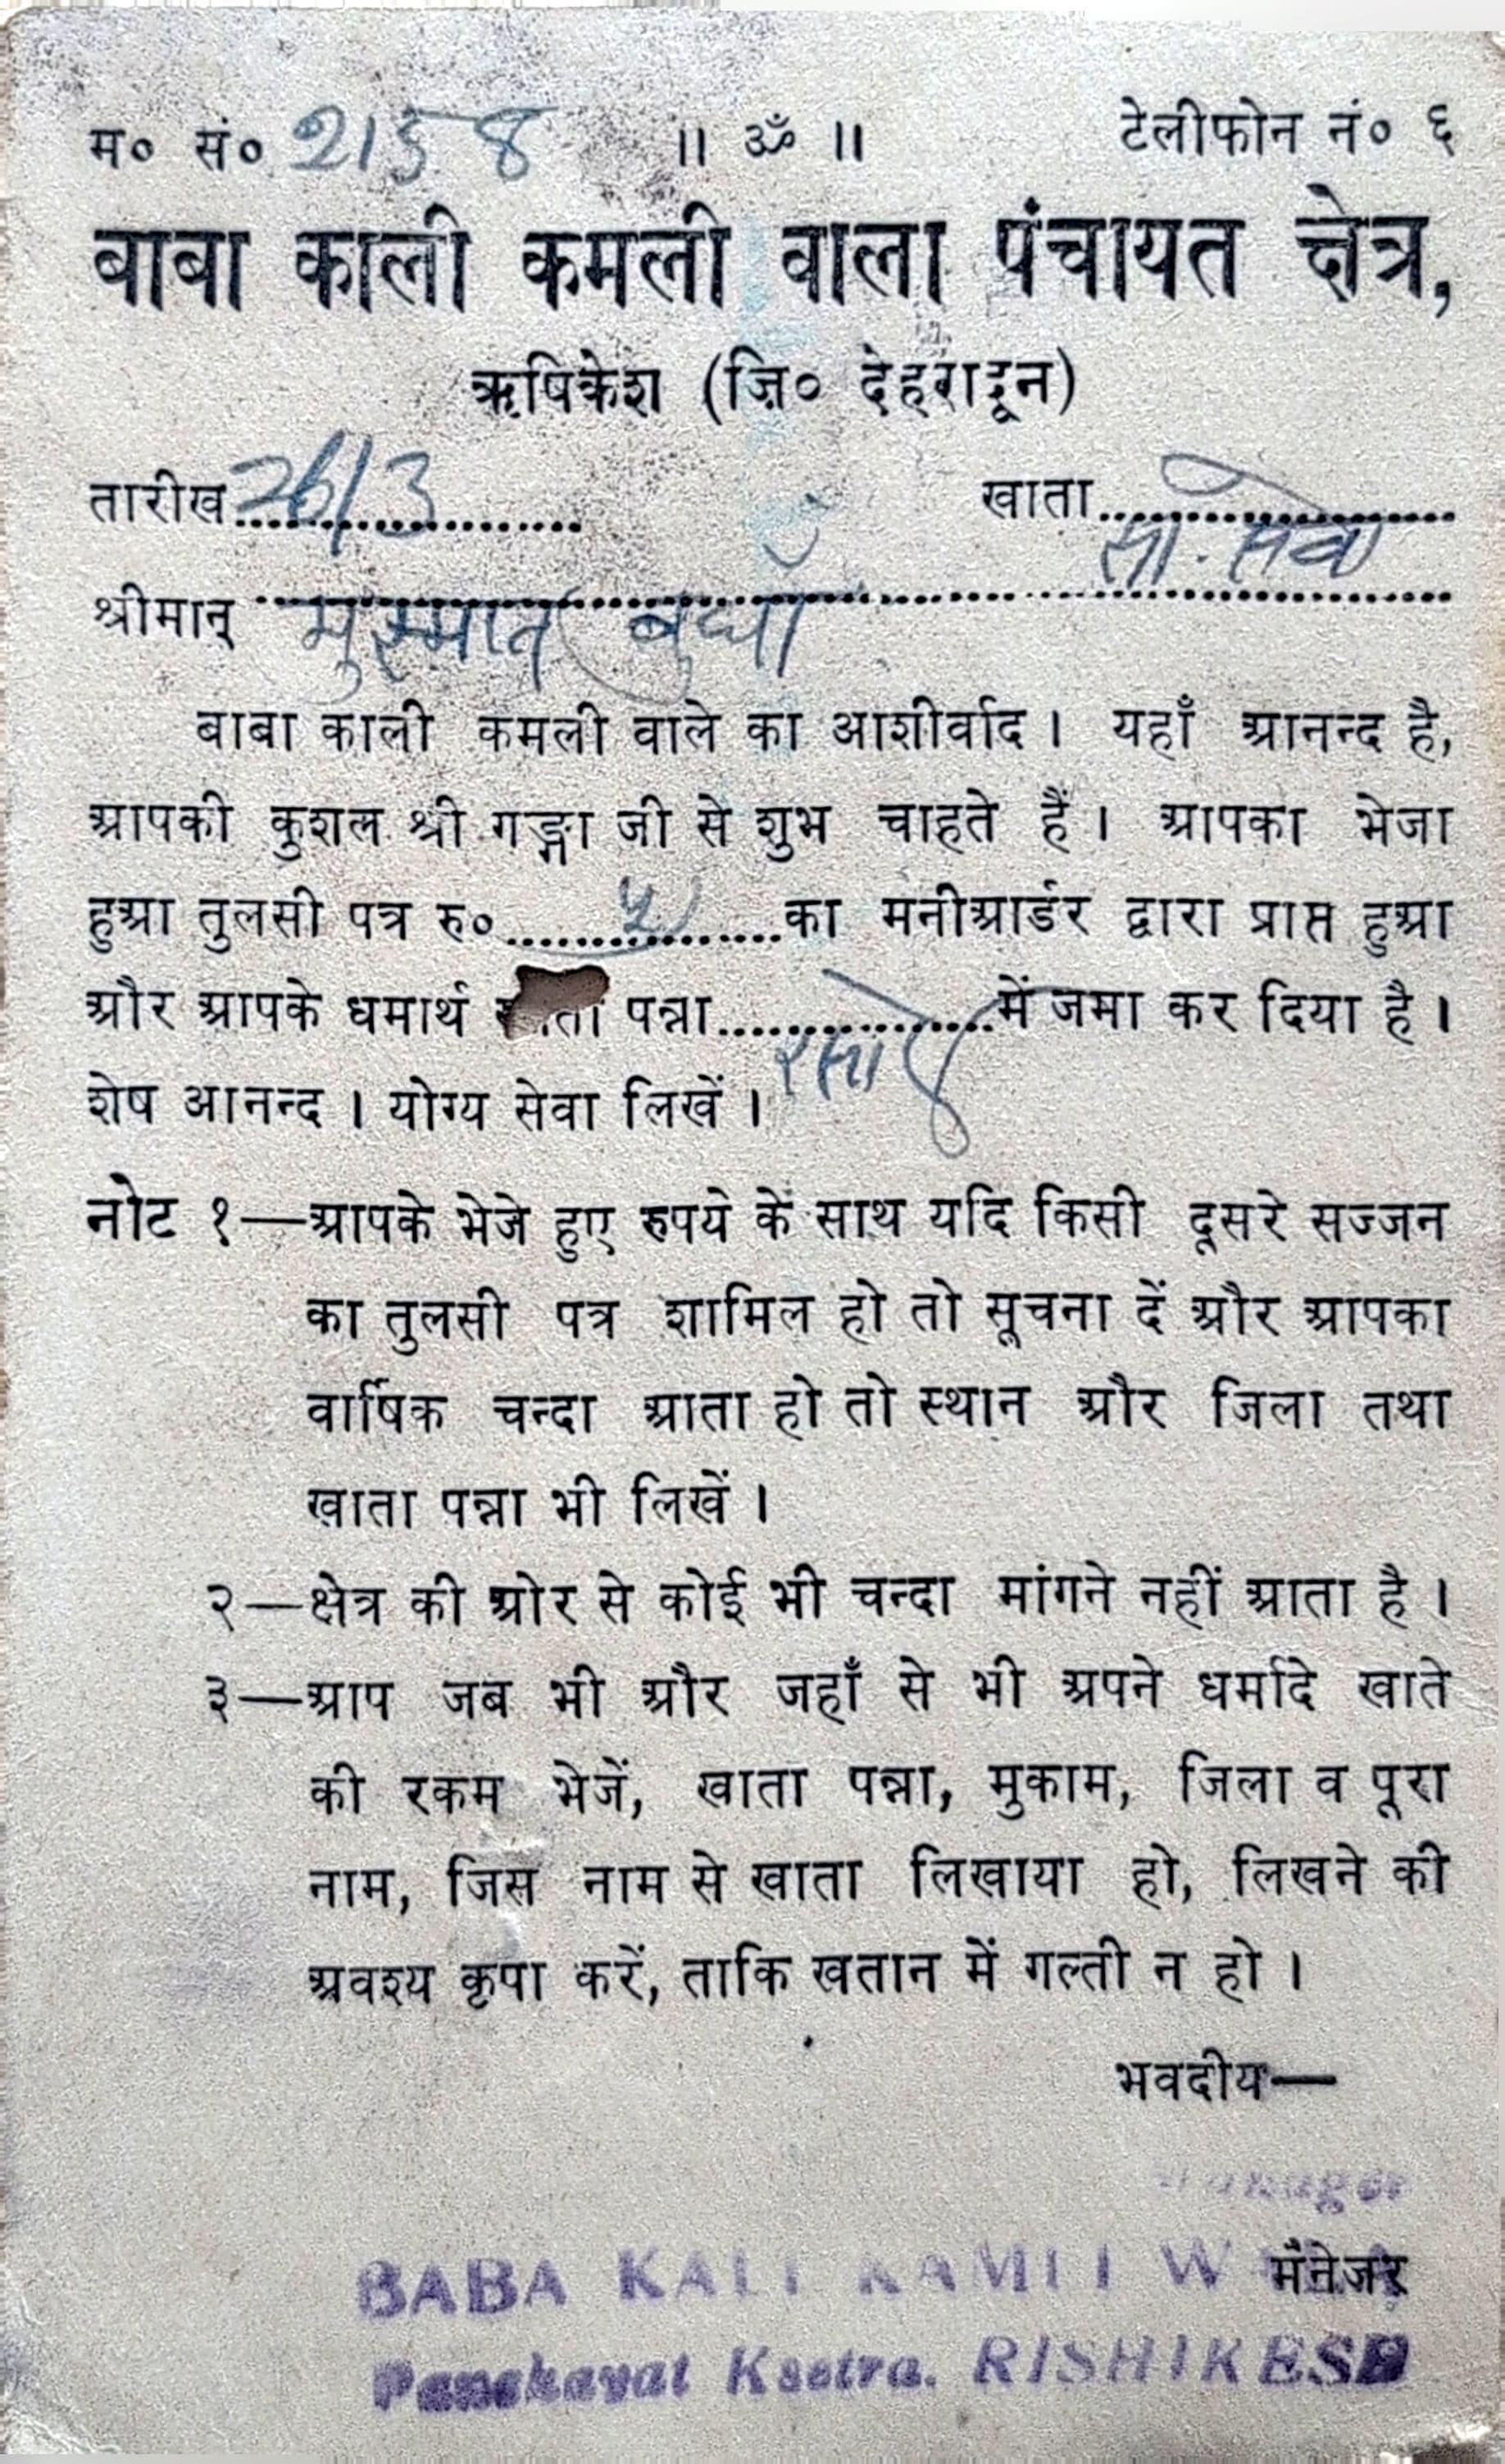 म० सं० 2158 ॥ ॐ ॥ टेलीफोन नं० ६
बाबा काली कमली वाला पंचायत क्षेत्र,
ऋषिकेश (ज़ि० देहरादून)
तारीख 26/3 खाता सा. सेवा
श्रीमान् मुसमात बुधाँ
बाबा काली कमली वाले का आशीर्वाद । यहाँ आनन्द है,
आपकी कुशल श्री गङ्गा जी से शुभ चाहते हैं । आपका भेजा
हुआ तुलसी पत्र रु० ५ का मनीआर्डर द्वारा प्राप्त हुआ
और आपके धमार्थ पन्ना में जमा कर दिया है ।
शेष आनन्द । योग्य सेवा लिखें ।
नोट १—आपके भेजे हुए रुपये के साथ यदि किसी दूसरे सज्जन
का तुलसी पत्र शामिल हो तो सूचना दें और आपका
वार्षिक चन्दा आता हो तो स्थान और जिला तथा
खाता पन्ना भी लिखें ।
२—क्षेत्र की ओर से कोई भी चन्दा मांगने नहीं आता है ।
३—आप जब भी और जहाँ से भी अपने धर्मादे खाते
की रकम भेजें, खाता पन्ना, मुकाम, जिला व पूरा
नाम, जिस नाम से खाता लिखाया हो, लिखने की
अवश्य कृपा करें, ताकि खतान में गल्ती न हो ।
भवदीय—
मैनेजर
BABA KALI KAMLI
Panchayat Ksetra. RISHIKESH